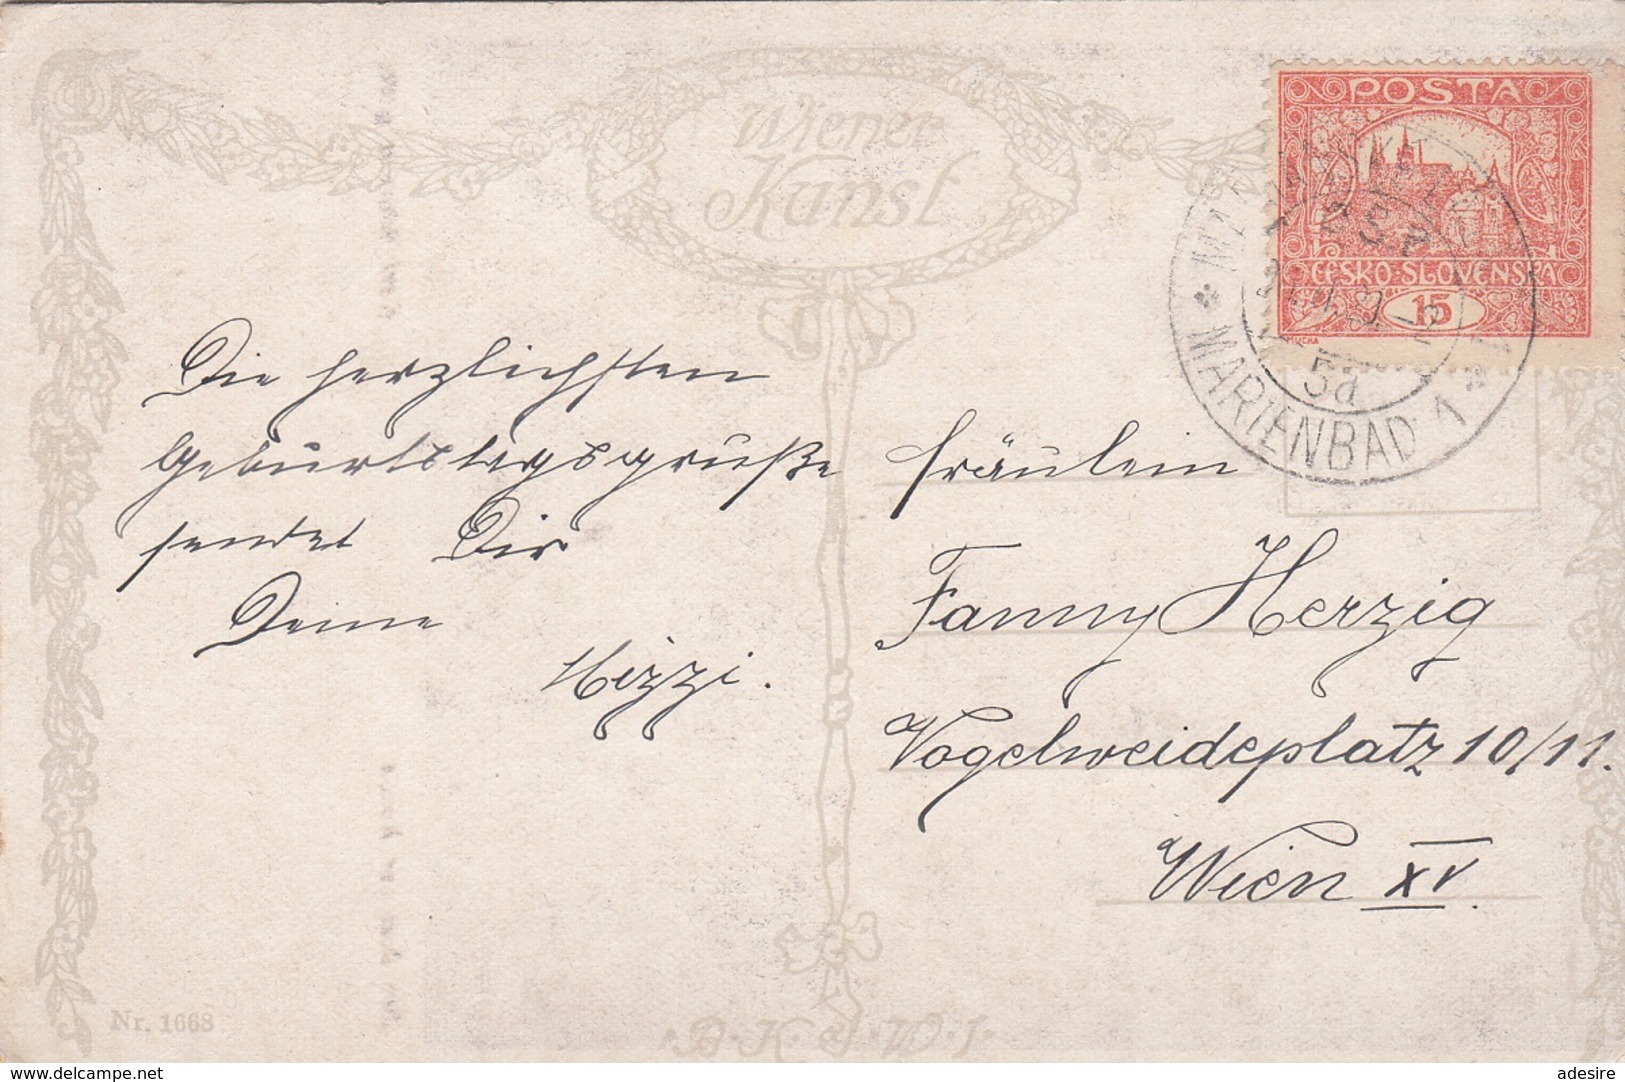 Wiener
Kunst
POSTA
ČESKO·SLOVENSKÁ
15
MUCHA
* MARIENBAD 1 *
5a
Die herzlichsten
Geburtstagsgrüße
sendet Dir
Deine
Mizzi.
Fräulein
Fanny Herzig
Vogelweideplatz 10/11.
Wien XV.
Nr. 1668
·B·K·W·I·
www.delcampe.net
adesire